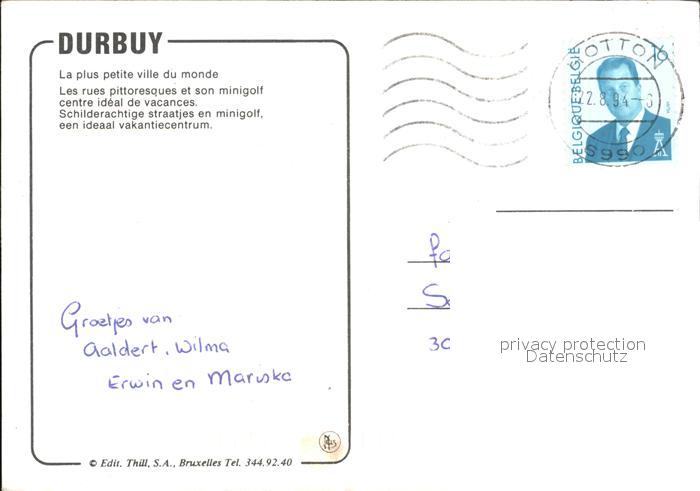 DURBUY
La plus petite ville du monde
Les rues pittoresques et son minigolf
centre idéal de vacances.
Schilderachtige straatjes en minigolf,
een ideaal vakantiecentrum.
Groetjes van
Aaldert, Wilma
Erwin en Mariska
© Edit. Thill, S.A., Bruxelles Tel. 344.92.40
BELGIQUE·BELGIË
16
HOTTON
2.8.94
30
privacy protection
Datenschutz